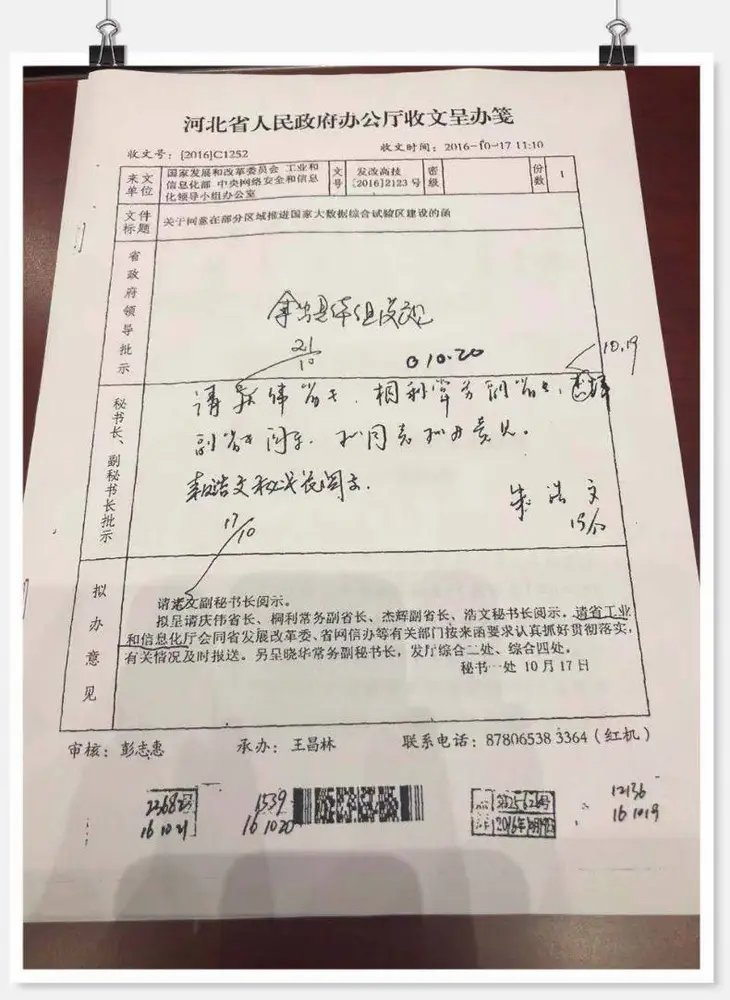 河北省人民政府办公厅收文呈办笺
收文号：[2016]C1252
收文时间：2016-10-17 11:10
来文单位
国家发展和改革委员会 工业和
信息化部 中央网络安全和信息
化领导小组办公室
文号
发改高技
[2016]2123号
密级
份数
1
文件标题
关于同意在部分区域推进国家大数据综合试验区建设的函
省政府领导批示
21/10
10.20
10.19
秘书长、副秘书长批示
请庆伟省长、桐利常务副省长、杰辉
副省长阅示。拟同意拟办意见。
朱浩文
请浩文秘书长阅示。
17/10
拟办意见
请志文副秘书长阅示。
拟呈请庆伟省长、桐利常务副省长、杰辉副省长、浩文秘书长阅示，请省工业
和信息化厅会同省发展改革委、省网信办等有关部门按来函要求认真抓好贯彻落实，
有关情况及时报送。另呈晓华常务副秘书长，发厅综合二处、综合四处。
秘书一处 10月17日
审核：彭志惠
承办：王昌林
联系电话：87806538 3364（红机）
2268号
16 10 21
1539
16 10 20
2016年10月19日
12136
16 10 19